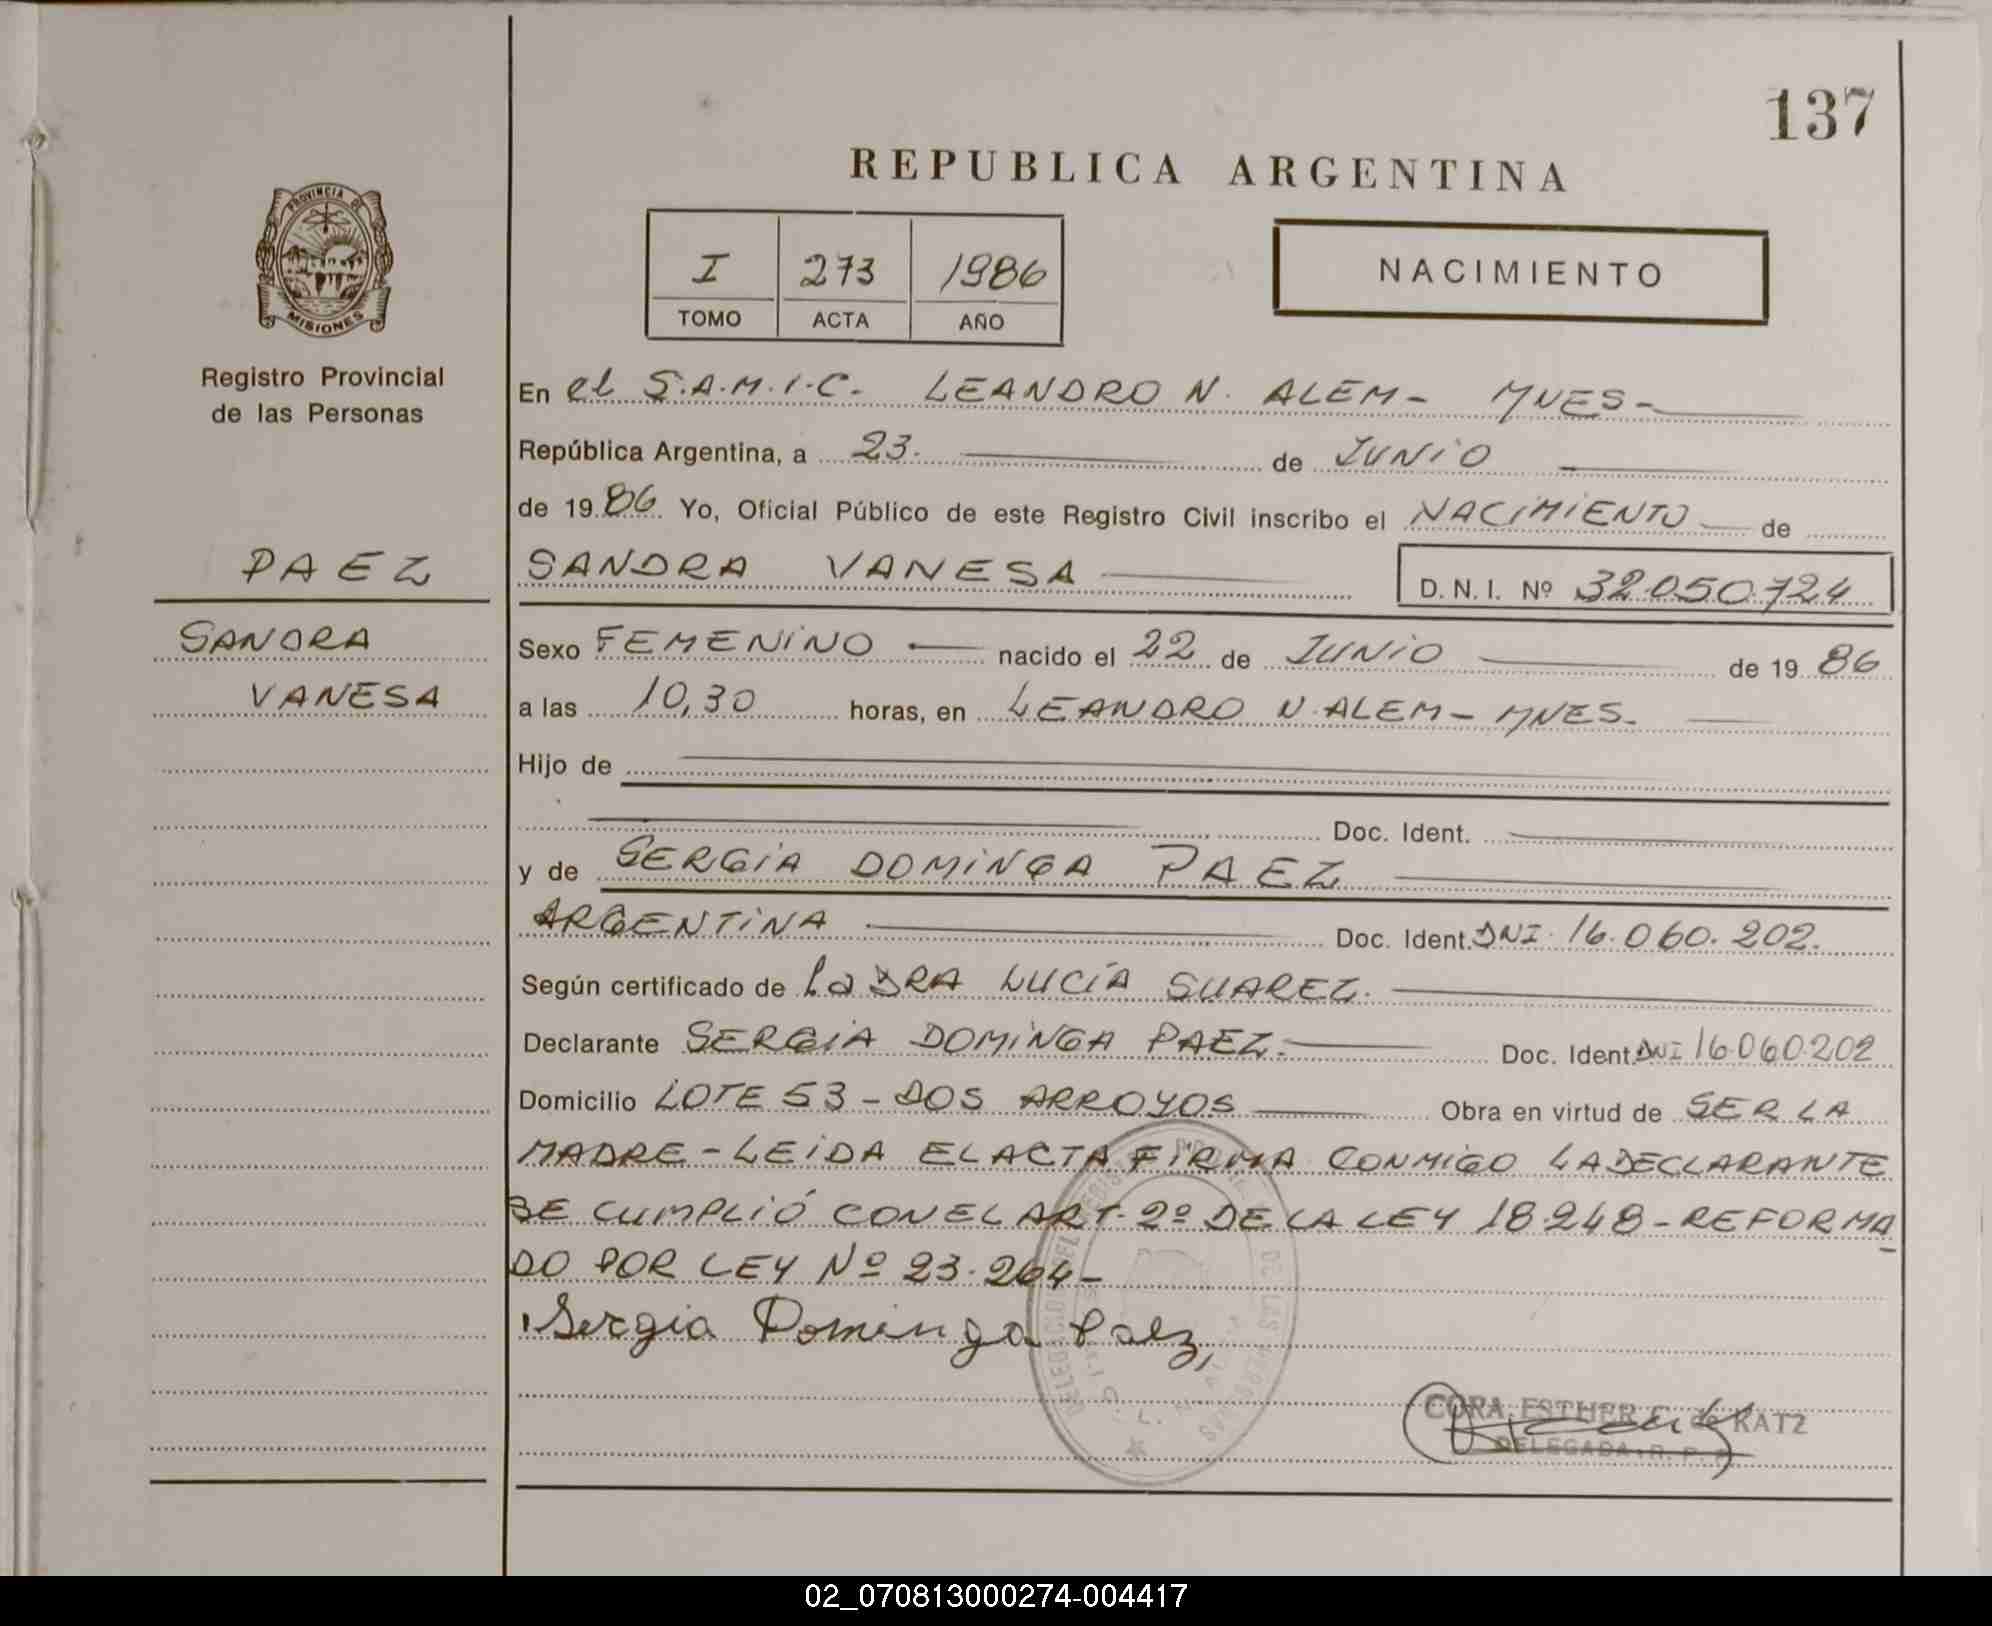 137
REPUBLICA ARGENTINA
PROVINCIA DE
MISIONES
Registro Provincial
de las Personas
I 273 1986
TOMO ACTA AÑO
NACIMIENTO
En el S.A.M.I.C. LEANDRO N. ALEM- MNES-
República Argentina, a 23. de JUNIO
de 1986. Yo, Oficial Público de este Registro Civil inscribo el NACIMIENTO de
PAEZ
SANDRA VANESA D. N. I. Nº 32.050.724
SANDRA
VANESA
Sexo FEMENINO nacido el 22 de JUNIO de 1986
a las 10,30 horas, en LEANDRO N. ALEM- MNES.
Hijo de
Doc. Ident.
y de SERGIA DOMINGA PAEZ
ARGENTINA Doc. Ident. DNI. 16.060.202.
Según certificado de La DRA LUCÍA SUAREZ.
Declarante SERGIA DOMINGA PAEZ. Doc. Ident. DNI 16.060.202
Domicilio LOTE 53 - DOS ARROYOS Obra en virtud de SER LA
MADRE - LEIDA EL ACTA FIRMA CONMIGO LA DECLARANTE
SE CUMPLIÓ CON EL ART. 2º DE LA LEY 18.248 - REFORMA
DO POR LEY Nº 23.264-
Sergia Dominga Paez,
CORA ESTHER de KATZ
DELEGADA R. P. P.
02_070813000274-004417